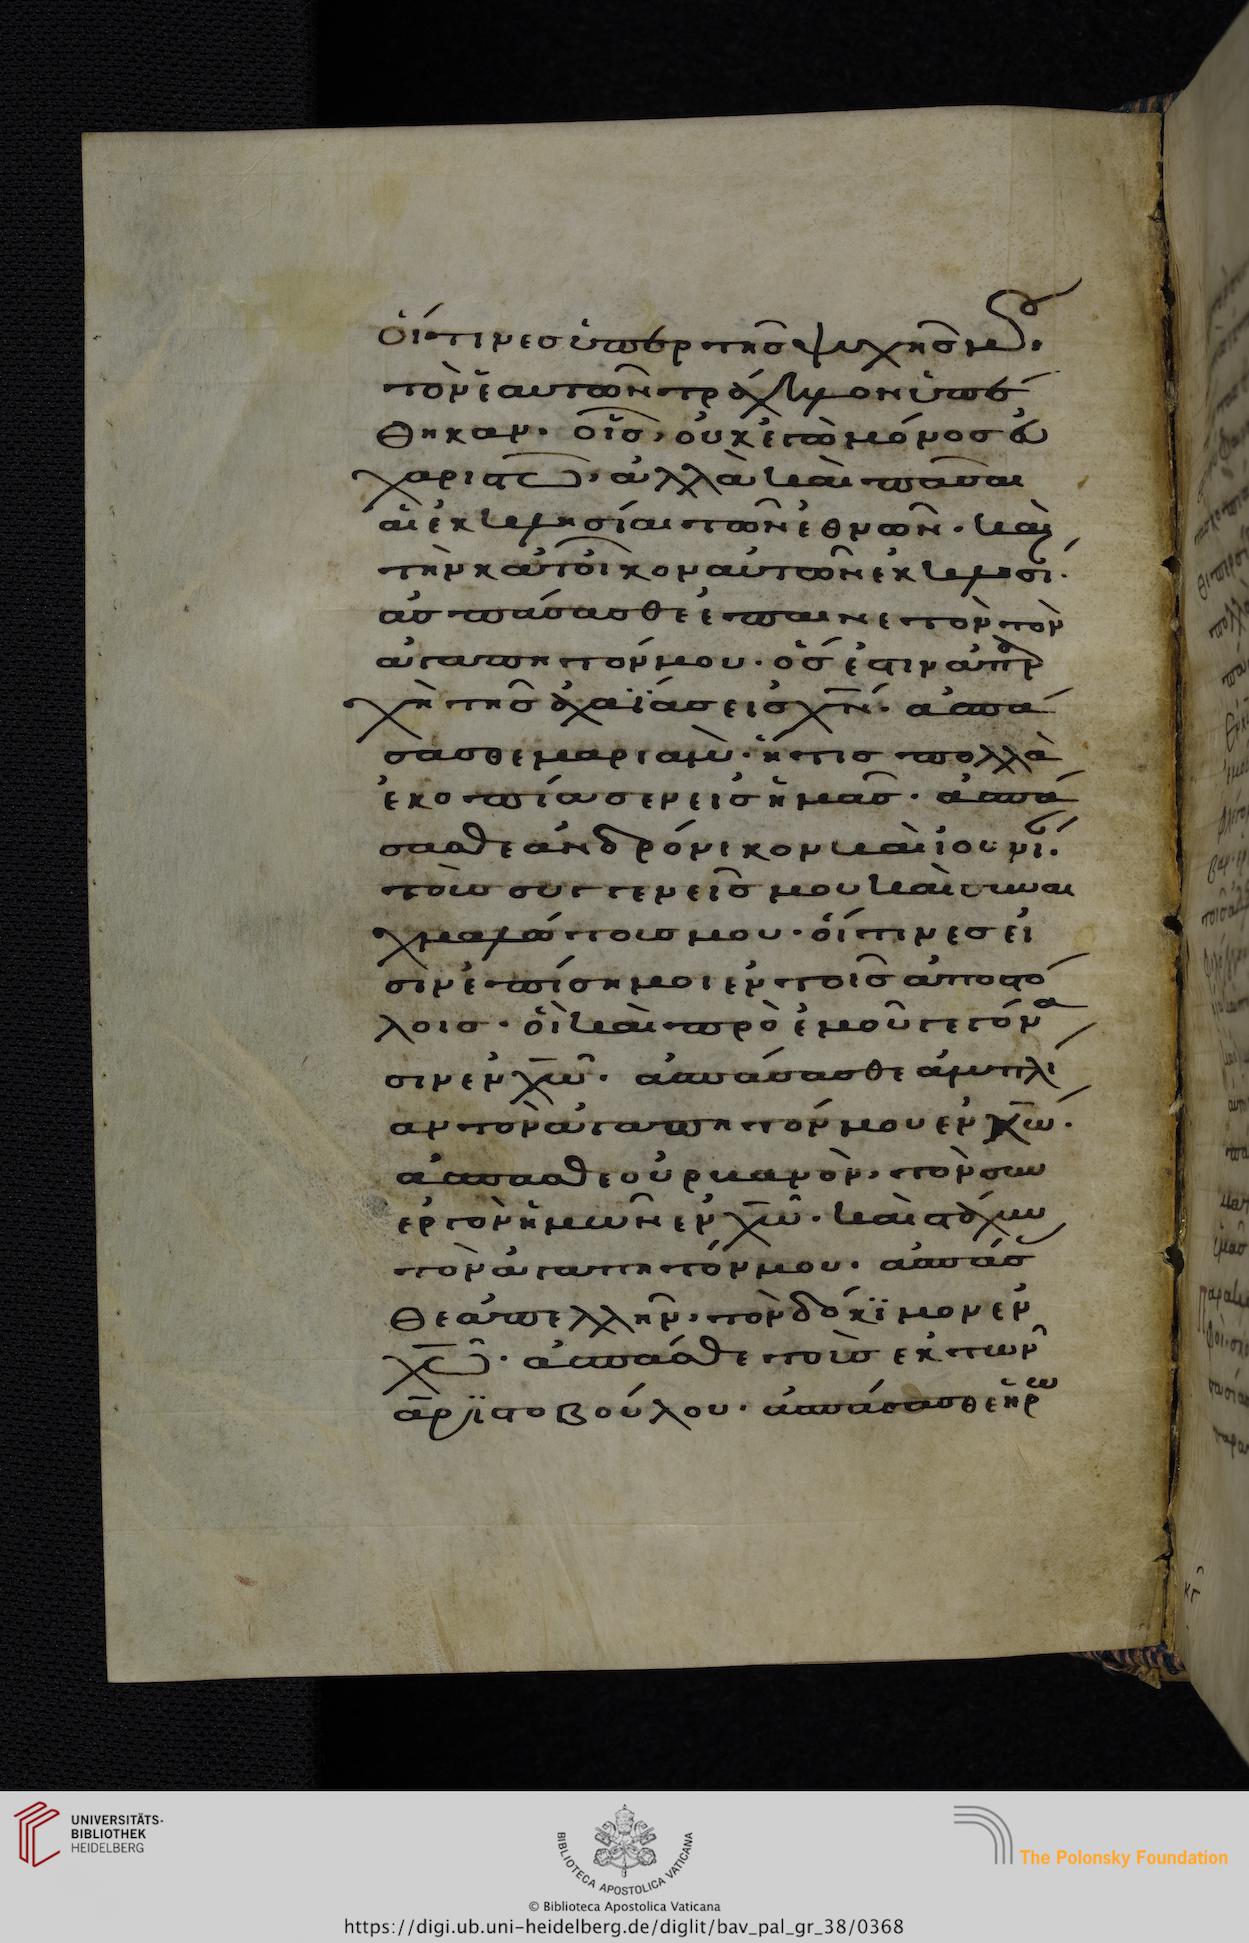 οἵτινες ὑπὲρ τῆς ψυχῆς μου.
τὸν ἑαυτῶν τράχηλον ὑπέ
θηκαν· οἷς, οὐκ ἐγὼ μόνος εὐ
χαριστῶ, ἀλλὰ καὶ πᾶσαι
αἱ ἐκκλησίαι τῶν ἐθνῶν· καὶ
τὴν κατ οἶκον αὐτῶν ἐκκλησί·
ἀσπάσασθε ἐπαινετὸν τὸν
ἀγαπητόν μου· ὅς ἐστιν ἀπαρ
χὴ τῆς ἀχαϊάς εἰς χν̄· ἀσπά
σασθε μαριάμ· ἥτις πολλὰ
ἐκοπίασεν εἰς ἡμᾶς· ἀσπά
σασθε ἀνδρόνικον καὶ ἰουνί·
τοὺς συγγενεῖς μου καὶ συναι
χμαλώτους μου· οἵτινες εἰ
σιν ἐπίσημοι ἐν τοῖς ἀποστό
λοις· οἳ καὶ πρὸ ἐμοῦ γεγόνα
σιν ἐν χω̄· ἀσπάσασθε ἀμπλί
αν τὸν ἀγαπητόν μου ἐν κω̄·
ἀσπασθε οὐρβανὸν, τὸν συν
εργὸν ἡμῶν ἐν χω̄· καὶ στάχυν
τὸν ἀγαπητόν μου· ἀσπάσ
θε ἀπελλῆν, τὸν δόκϊμον ἐν
χω̄· ἀσπάσθε τοὺς ἐκ τῶν
ἀρϊστοβούλου· ἀσπάσασθε ἡρω
UNIVERSITÄTS-
BIBLIOTHEK
HEIDELBERG
BIBLIOTECA APOSTOLICA VATICANA
The Polonsky Foundation
© Biblioteca Apostolica Vaticana
https://digi.ub.uni-heidelberg.de/diglit/bav_pal_gr_38/0368